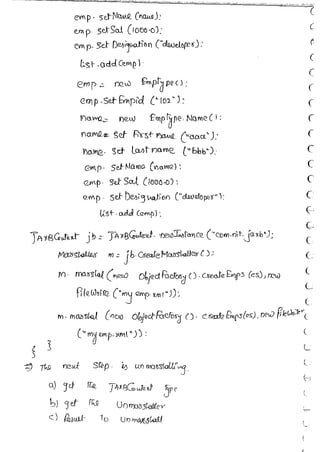 emp. setName (name);
emp. setSal (1000.0);
emp. Set Designation ("developer");
list.add (emp)
emp = new Emptype();
emp. Set Empid ("102");
name= new Emptype. Name();
name= Set First name ("aaa");
name. Set last name ("bbb").
emp. Set Name (name);
emp. Set Sal (1000.0);
emp. set Designation ("developer");
list.add (emp);
JAXBContext jb = JAXBContext. newInstance ("com.nit. jaxb");
Marshaller m = jb. Create Marshaller ();
m. marshal (new Object Factory (). Create Emps (es), new
fileWrite ("my emp.xml"));
m. marshal (new Object Factory (). create Emps(es), new fileWriter
("my emp.xml"));
}
}
⇒ The next Step is unmarshalling.
a) get the JAXBContext type
b) get the Unmarshaller
c) Result to Unmarshall